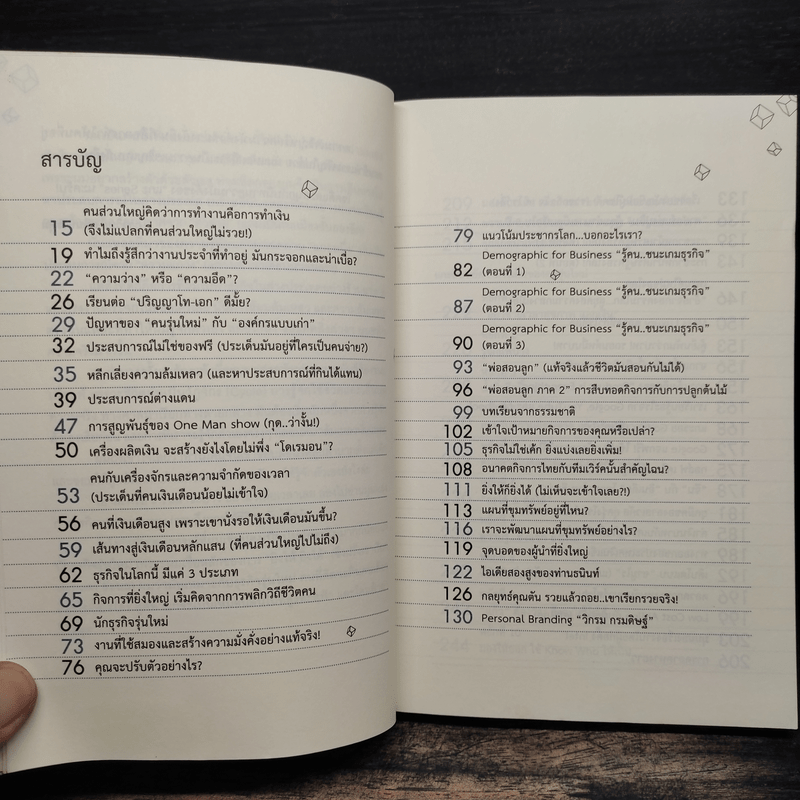 สารบัญ
คนส่วนใหญ่คิดว่าการทำงานคือการทำเงิน
15 (จึงไม่แปลกที่คนส่วนใหญ่ไม่รวย!)
19 ทำไมถึงรู้สึกว่างานประจำที่ทำอยู่ มันกระจอกและน่าเบื่อ?
22 “ความว่าง” หรือ “ความอึด”?
26 เรียนต่อ “ปริญญาโท-เอก” ดีมั้ย?
29 ปัญหาของ “คนรุ่นใหม่” กับ “องค์กรแบบเก่า”
32 ประสบการณ์ไม่ใช่ของฟรี (ประเด็นมันอยู่ที่ใครเป็นคนจ่าย?)
35 หลีกเลี่ยงความล้มเหลว (และหาประสบการณ์ที่กินได้แทน)
39 ประสบการณ์ต่างแดน
47 การสูญพันธุ์ของ One Man show (กุด..ว่างั้น!)
50 เครื่องผลิตเงิน จะสร้างยังไงโดยไม่พึ่ง “โดเรมอน”?
คนกับเครื่องจักรและความจำกัดของเวลา
53 (ประเด็นที่คนเงินเดือนน้อยไม่เข้าใจ)
56 คนที่เงินเดือนสูง เพราะเขานั่งรอให้เงินเดือนมันขึ้น?
59 เส้นทางสู่เงินเดือนหลักแสน (ที่คนส่วนใหญ่ไปไม่ถึง)
62 ธุรกิจในโลกนี้ มีแค่ 3 ประเภท
65 กิจการที่ยิ่งใหญ่ เริ่มคิดจากการพลิกวิถีชีวิตคน
69 นักธุรกิจรุ่นใหม่
73 งานที่ใช้สมองและสร้างความมั่งคั่งอย่างแท้จริง!
76 คุณจะปรับตัวอย่างไร?
79 แนวโน้มประชากรโลก...บอกอะไรเรา?
Demographic for Business “รู้คน..ชนะเกมธุรกิจ”
82 (ตอนที่ 1)
Demographic for Business “รู้คน..ชนะเกมธุรกิจ”
87 (ตอนที่ 2)
Demographic for Business “รู้คน..ชนะเกมธุรกิจ”
90 (ตอนที่ 3)
93 “พ่อสอนลูก” (แท้จริงแล้วชีวิตมันสอนกันไม่ได้)
96 “พ่อสอนลูก ภาค 2” การสืบทอดกิจการกับการปลูกต้นไม้
99 บทเรียนจากธรรมชาติ
102 เข้าใจเป้าหมายกิจการของคุณหรือเปล่า?
105 ธุรกิจไม่ใช่เค้ก ยิ่งแบ่งเลยยิ่งเพิ่ม!
108 อนาคตกิจการไทยกับทีมเวิร์คนั้นสำคัญไฉน?
111 ยิ่งให้ก็ยิ่งได้ (ไม่เห็นจะเข้าใจเลย?!)
113 แผนที่ขุมทรัพย์อยู่ที่ไหน?
116 เราจะพัฒนาแผนที่ขุมทรัพย์อย่างไร?
119 จุดบอดของผู้นำที่ยิ่งใหญ่
122 ไอเดียสองสูงของท่านธนินท์
126 กลยุทธ์คุณตัน รวยแล้วถอย..เขาเรียกรวยจริง!
130 Personal Branding “วิกรม กรมดิษฐ์”